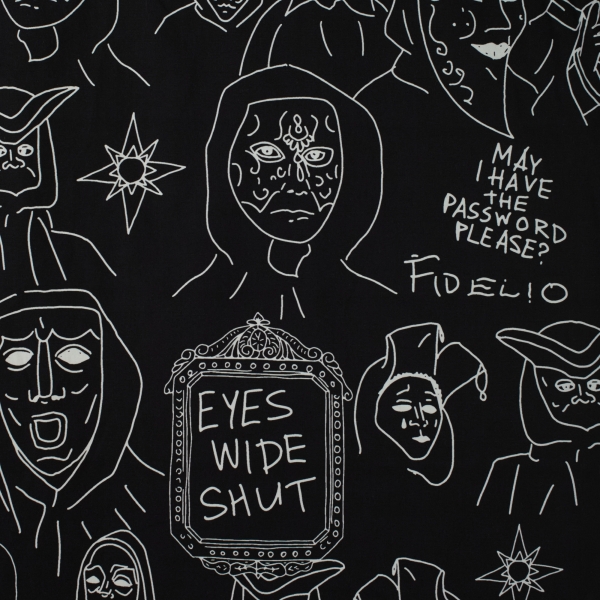 MAY
I HAVE
THE
PASSWORD
PLEASE?
FIDELIO
EYES
WIDE
SHUT